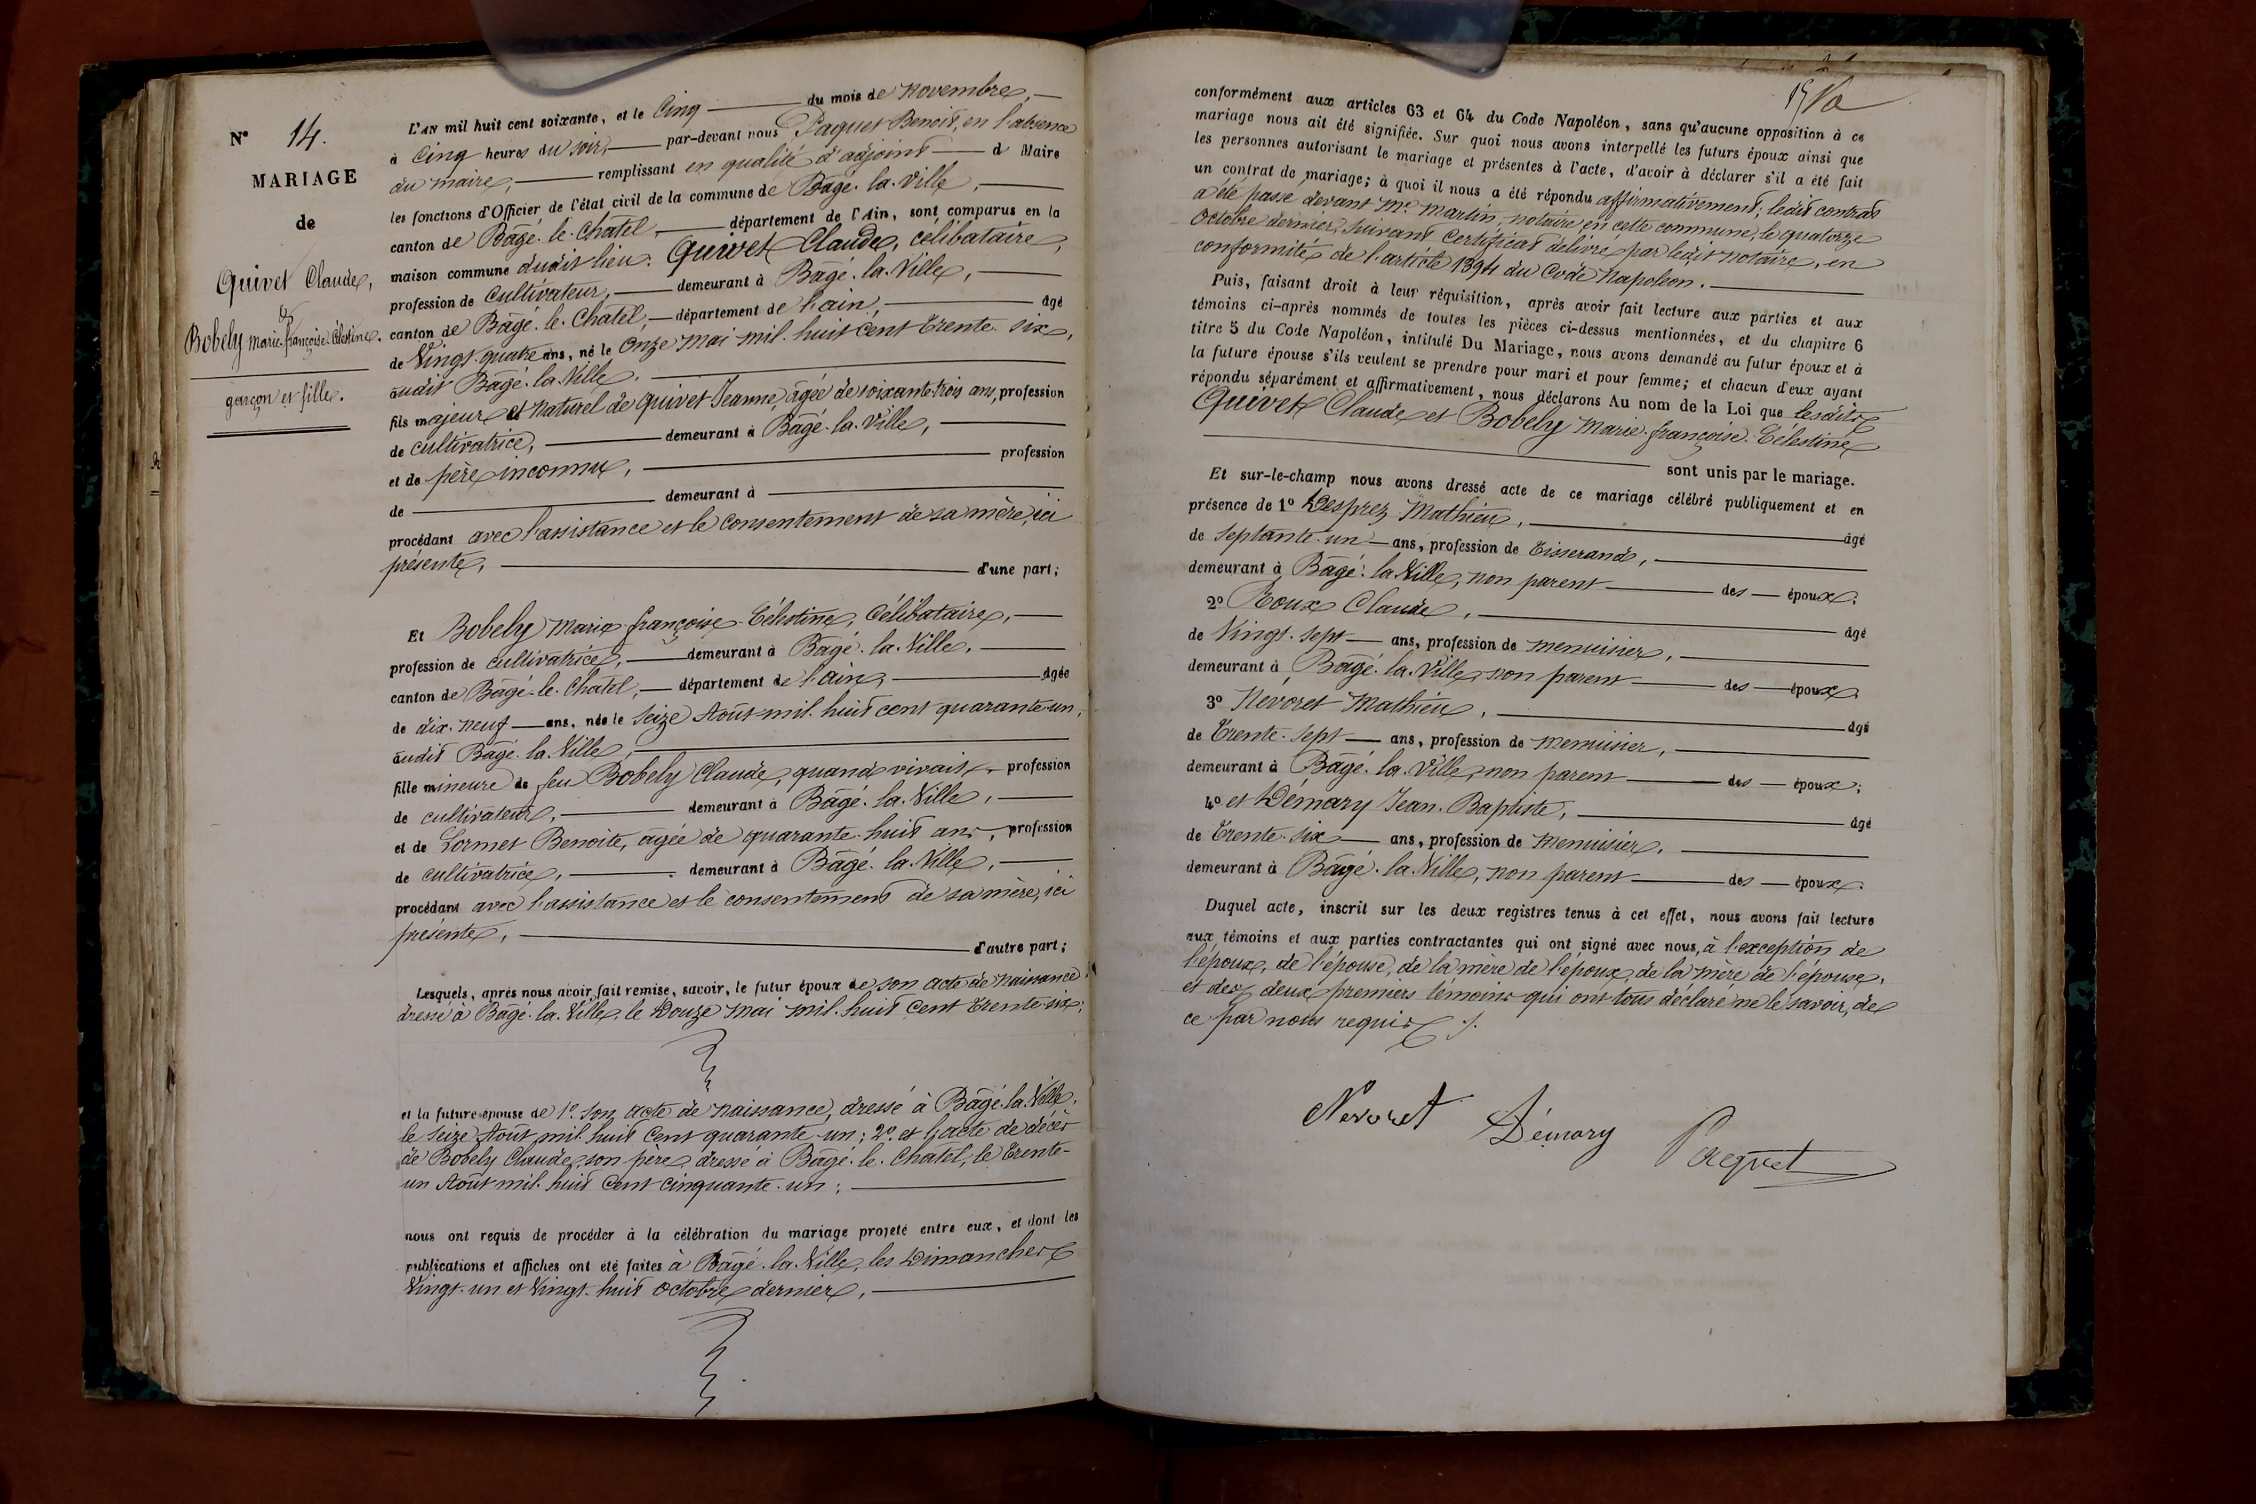 N° 14.
MARIAGE
de
Quivet Claude,
&
Bobely marie-françoise-Célestine.
garçon et fille.
L'AN mil huit cent soixante, et le Cinq du mois de novembre,
à Cinq heures du soir, par-devant nous Paquet Benoit, en l'absence
du maire, remplissant en qualité d'adjoint d Maire
les fonctions d'Officier de l'état civil de la commune de Bâgé-la-Ville,
canton de Bâgé-le-Chatel, département de l'Ain, sont comparus en la
maison commune dudit lieu. Quivet Claude, célibataire,
profession de Cultivateur, demeurant à Bâgé-la-Ville,
canton de Bâgé-le-Chatel, département de l'ain, âgé
de Vingt-quatre ans, né le Onze mai mil-huit cent trente-six,
audit Bâgé-la-Ville.
fils majeur et naturel de Quivet Jeanne, âgée de soixante-trois ans, profession
de cultivatrice, demeurant à Bâgé-la-Ville,
et de père inconnu, profession
de demeurant à
procédant avec l'assistance et le consentement de sa mère, ici
présente, d'une part;
Et Bobely marie-françoise-Célestine, Célibataire,
profession de cultivatrice, demeurant à Bâgé-la-Ville,
canton de Bâgé-le-Chatel, département de l'ain, âgée
de dix-neuf ans, née le Seize Août mil-huit cent quarante-un,
audit Bâgé-la-Ville,
fille mineure de feu Bobely Claude, quand vivait, profession
de cultivateur, demeurant à Bâgé-la-Ville,
et de Lormet Benoite, agée de quarante-huit ans, profession
de cultivatrice, demeurant à Bâgé-la-Ville,
procédant avec l'assistance et le consentement de sa mère, ici
présente, d'autre part;
Lesquels, après nous avoir fait remise, savoir, le futur époux de son acte de naissance
dressé à Bâgé-la-Ville, le Douze mai mil-huit Cent trente-six;
et la future épouse de 1° Son acte de naissance, dressé à Bâgé-la-Ville,
le Seize Août mil-huit Cent quarante-un; 2° et l'acte de décès
de Bobely Claude, son père, dressé à Bâgé-le-Chatel, le Trente-
un Août mil-huit Cent Cinquante-un;
nous ont requis de procéder à la célébration du mariage projeté entre eux, et dont les
publications et affiches ont été faites à Bâgé-la-Ville, les Dimanches
Vingt-un et Vingt-huit Octobre dernier,
conformément aux articles 63 et 64 du Code Napoléon, sans qu'aucune opposition à ce
mariage nous ait été signifiée. Sur quoi nous avons interpellé les futurs époux ainsi que
les personnes autorisant le mariage et présentes à l'acte, d'avoir à déclarer s'il a été fait
un contrat de mariage; à quoi il nous a été répondu affirmativement; ledit contrat
a été passé devant Me Martin, notaire en cette commune, le quatorze
Octobre dernier, suivant Certificat délivré par ledit notaire, en
conformité de l'article 1394 du Code Napoléon.
Puis, faisant droit à leur réquisition, après avoir fait lecture aux parties et aux
témoins ci-après nommés de toutes les pièces ci-dessus mentionnées, et du chapitre 6
titre 5 du Code Napoléon, intitulé Du Mariage, nous avons demandé au futur époux et à
la future épouse s'ils veulent se prendre pour mari et pour femme; et chacun d'eux ayant
répondu séparément et affirmativement, nous déclarons Au nom de la Loi que lesdits
Quivet Claude et Bobely marie-françoise-Célestine
sont unis par le mariage.
Et sur-le-champ nous avons dressé acte de ce mariage célébré publiquement et en
présence de 1° Desprez Mathieu, âgé
de Septante-un ans, profession de Tisserand,
demeurant à Bâgé-la-Ville, non parent des époux;
2° Roux Claude, âgé
de Vingt-sept ans, profession de menuisier,
demeurant à Bâgé-la-Ville, non parent des époux;
3° Nevoret Mathieu, âgé
de Trente-sept ans, profession de menuisier,
demeurant à Bâgé-la-Ville, non parent des époux;
4° et Démary Jean-Baptiste, âgé
de Trente-six ans, profession de menuisier,
demeurant à Bâgé-la-Ville, non parent des époux.
Duquel acte, inscrit sur les deux registres tenus à cet effet, nous avons fait lecture
aux témoins et aux parties contractantes qui ont signé avec nous, à l'exception de
l'époux, de l'épouse, de la mère de l'époux, de la mère de l'épouse,
et des deux premiers témoins qui ont tous déclaré ne le savoir, de
ce par nous requis ./.
Nevoret Démary Paquet